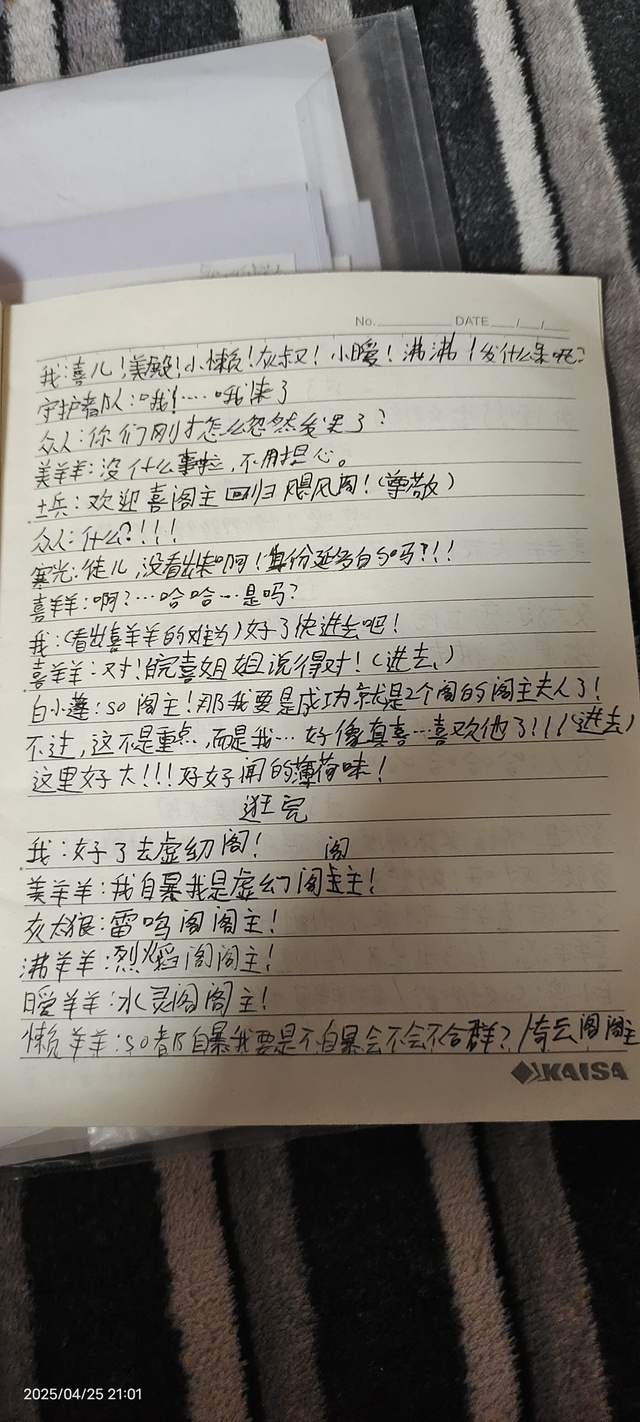 No. DATE / /
我:喜儿!美殿!小懒!灰叔!小暖!沸沸!发什么呆呢?
守护者队:哦!……哦来了
众人:你们刚才怎么忽然发呆了?
美羊羊:没什么事啦,不用担心。
士兵:欢迎喜阁主回归飓风阁!(尊敬)
众人:什么?!!!
寒光:徒儿,没看出来啊!身份延多白勺吗?!!!
喜羊羊:啊?…哈哈…是吗?
我:(看出喜羊羊的难为)好了快进去吧!
喜羊羊:对!皖喜姐姐说得对!(进去)
白小莲:so阁主!那我要是成功就是2个阁的阁主夫人了!
不过,这不是重点,而是我…好像真喜…喜欢他了!!!(进去)
这里好大!!!好好闻的薄荷味!
逛完
我:好了去虚幻阁!
美羊羊:我自暴我是虚幻阁阁主!
灰太狼:雷鸣阁阁主!
沸羊羊:烈焰阁阁主!
暖羊羊:水灵阁阁主!
懒羊羊:so都自暴我要是不自暴会不会不合群?倚云阁阁主
KAISA
2025/04/25 21:01